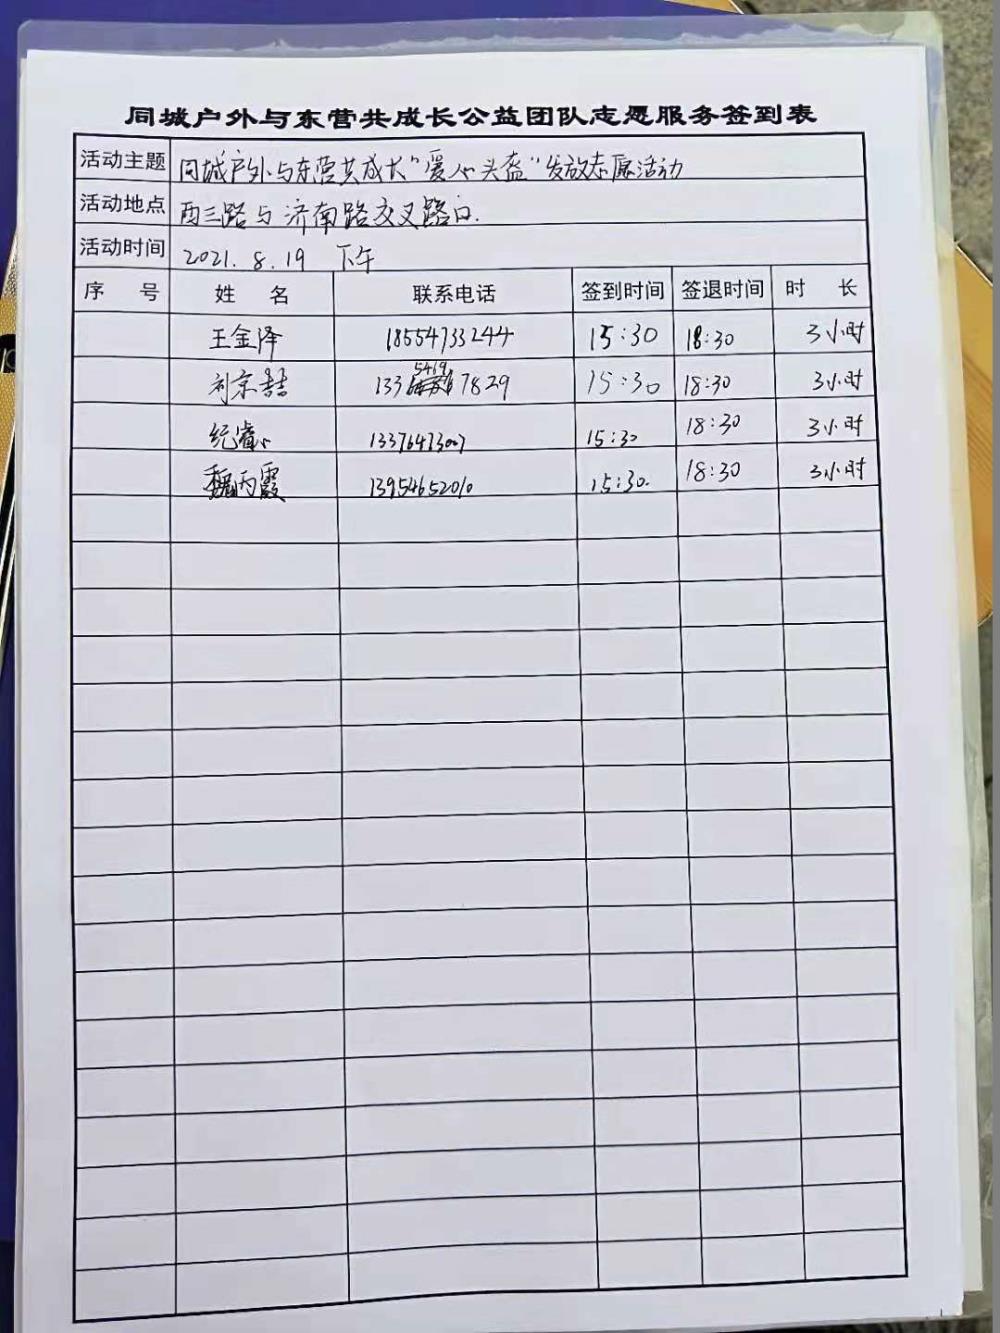 同城户外与东营共成长公益团队志愿服务签到表
活动主题 同城户外与东营共成长"爱心头盔"发放志愿活动
活动地点 西三路与济南路交叉路口.
活动时间 2021.8.19 下午
序 号 姓 名 联系电话 签到时间 签退时间 时 长
王金泽 18554733244 15:30 18:30 3小时
刘京喆 133 5469 7829 15:30 18:30 3小时
纪睿 13376473007 15:30 18:30 3小时
魏丙霞 13954652010 15:30. 18:30 3小时